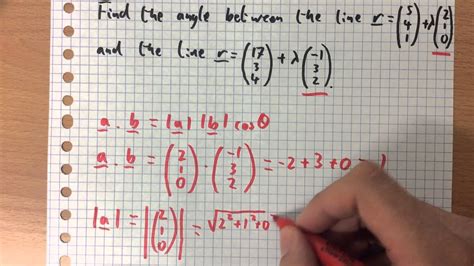 Find the angle between the line r = (5 4 1) + λ(2 1 0)
and the line r = (17 3 4) + λ(-1 3 2).
a . b = |a| |b| cos θ
a . b = (2 1 0) . (-1 3 2) = -2 + 3 + 0 = 1
|a| = |(2 1 0)| = √2² + 1² + 0